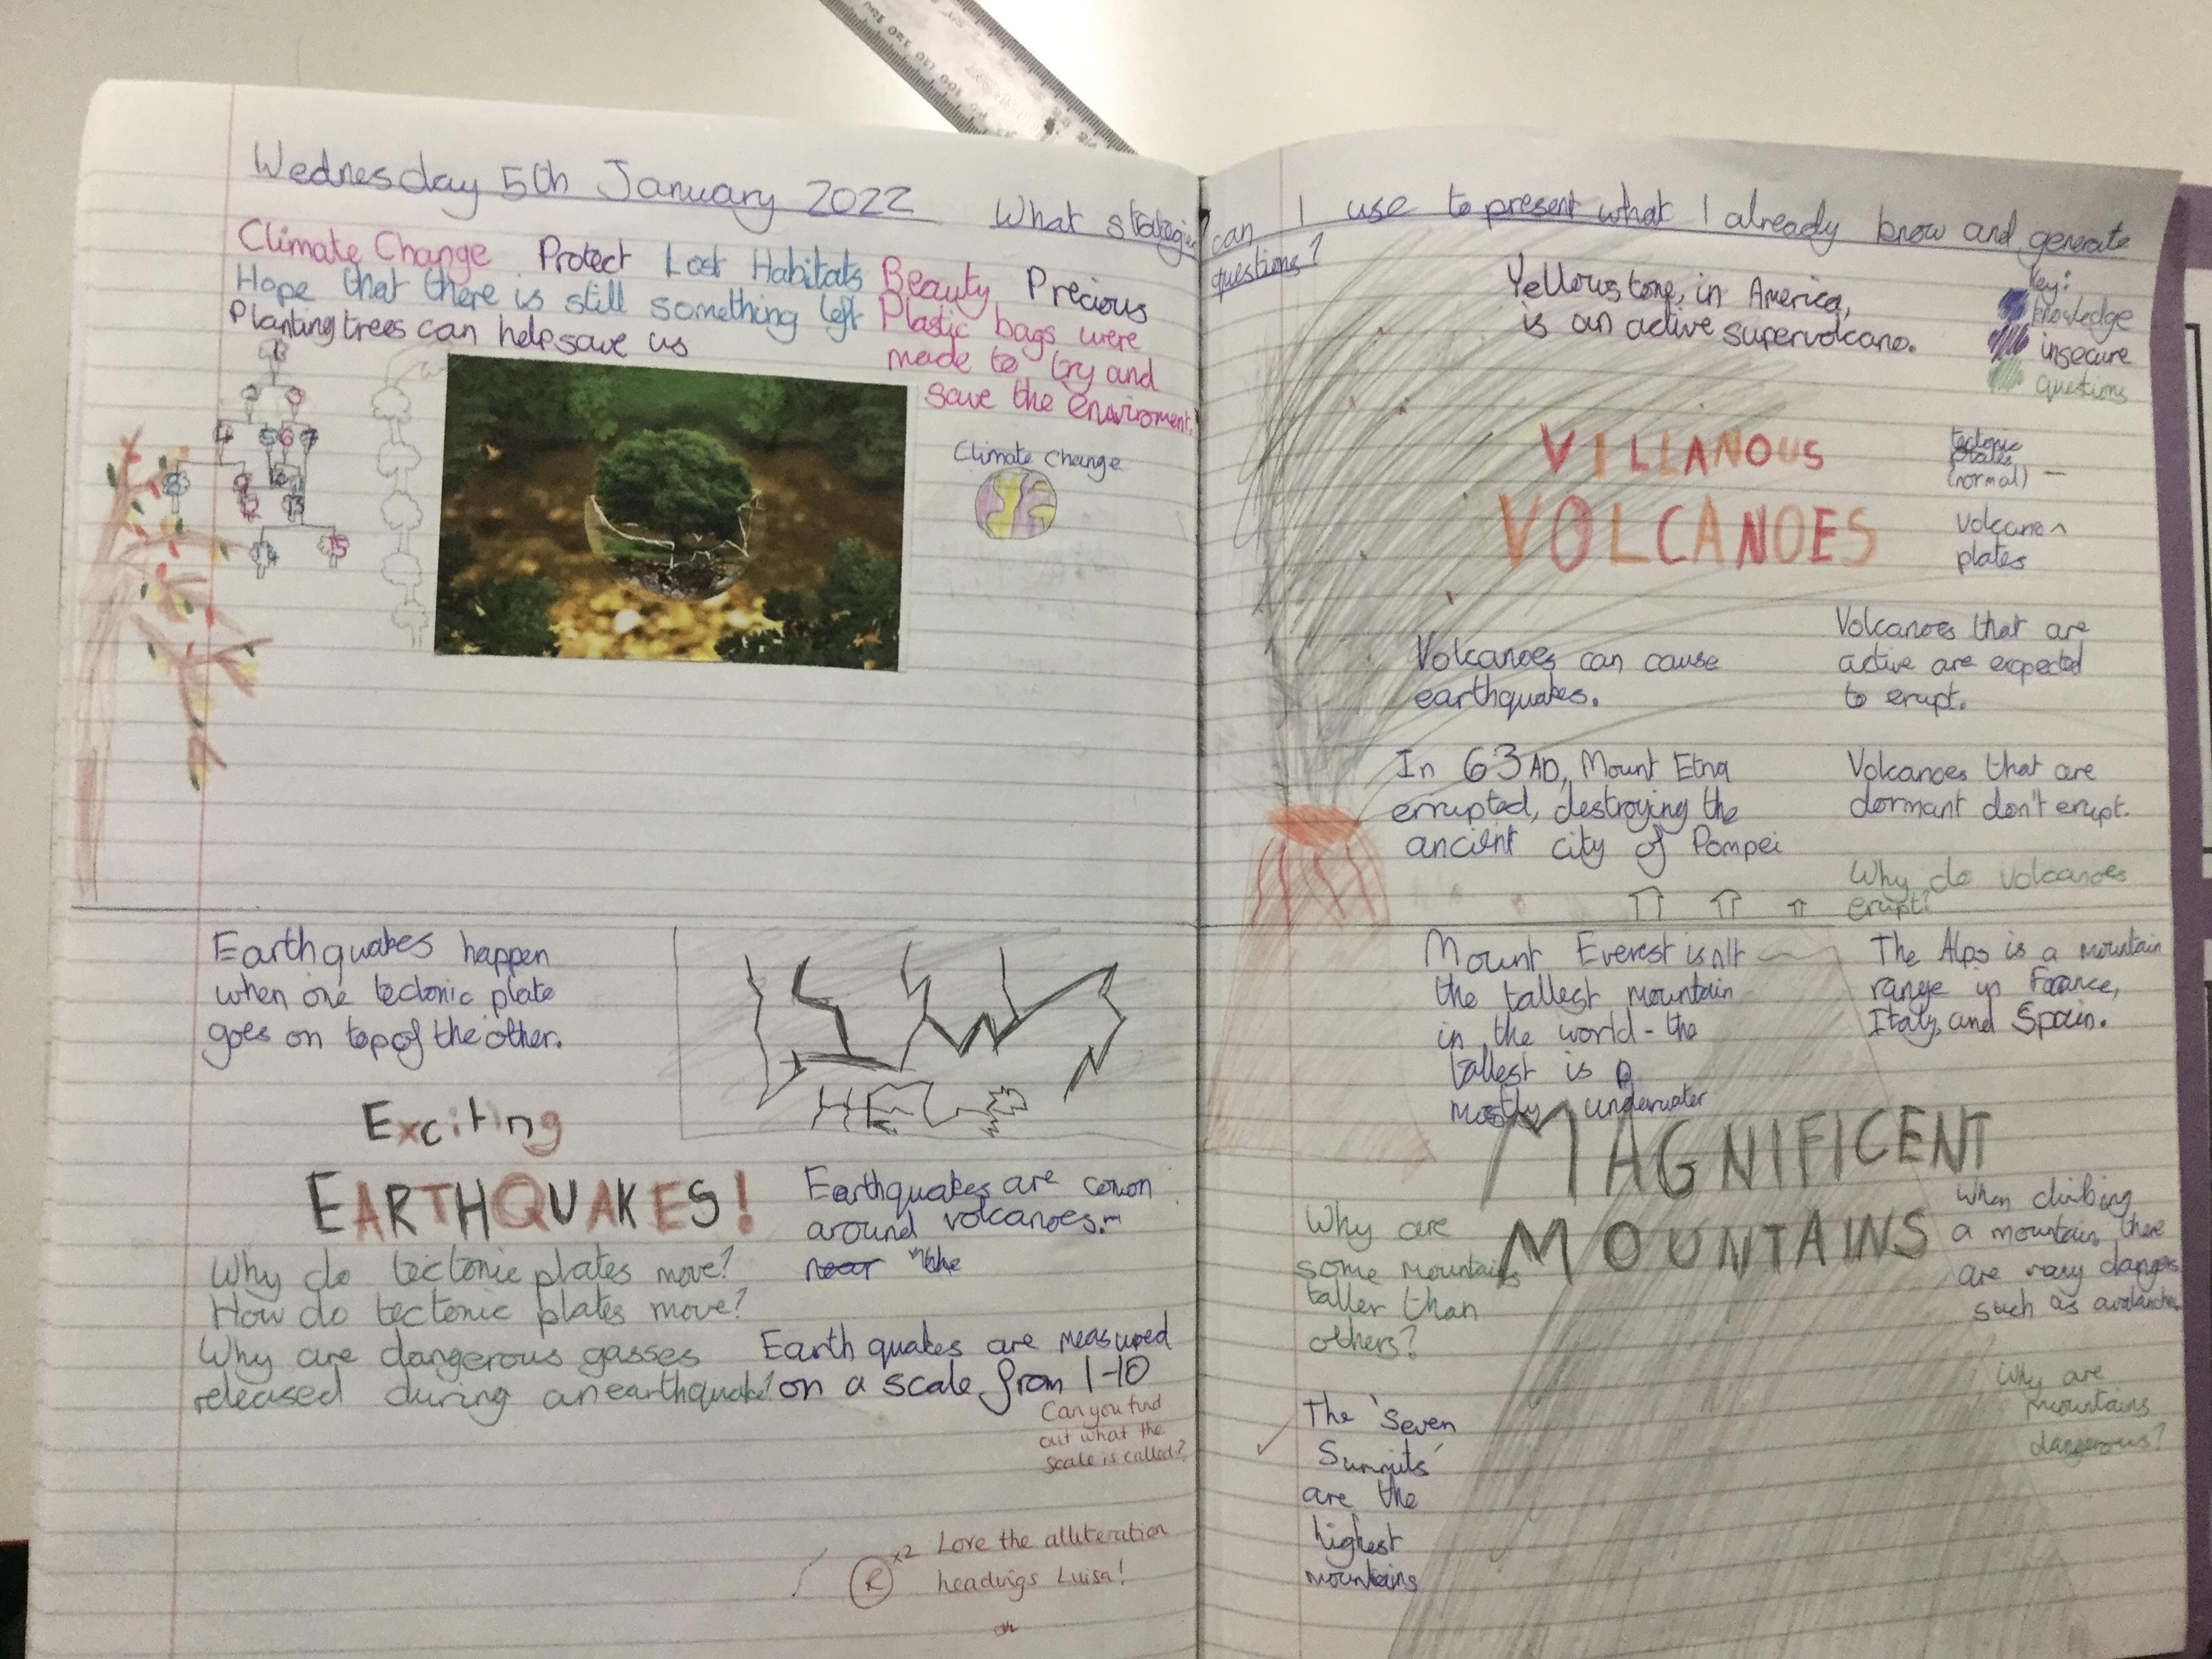 Wednesday 5th January 2022
What strategies can I use to present what I already know and generate
questions?
Climate Change Protect Lost Habitats
Hope that there is still something left
Planting trees can help save us
Beauty Precious
Plastic bags were
made to try and
save the enviroment.
1
2 3
4 5 6 7
8 9
12 13
14 15
Climate Change
Earthquakes happen
when one tectonic plate
goes on top of the other.
HELP
Exciting
EARTHQUAKES!
Why do tectonic plates move?
How do tectonic plates move?
Why are dangerous gasses
released during an earthquake?
Earthquakes are comon
around volcanoes.
near the
Earth quakes are measured
on a scale from 1-10
Can you find
out what the
scale is called?
R x2 Love the alliteration
headings Luisa!
Yellowstone, in America,
is an active supervolcano.
key:
knowledge
insecure
questions
VILLANOUS
VOLCANOES
tectonic
plates
(normal) —
volcane
plates
Volcanoes can cause
earthquakes.
Volcanoes that are
active are expected
to erupt.
In 63 AD, Mount Etna
errupted, destroying the
ancient city of Pompei
Volcanoes that are
dormant don't erupt.
Why do volcanoes
erupt?
Mount Everest isn't
the tallest mountain
in the world - the
tallest is
mostly underwater
The Alps is a mountain
range in France,
Italy and Spain.
MAGNIFICENT
MOUNTAINS
Why are
some mountains
taller than
others?
When climbing
a mountain, there
are many dangers
such as avalanches
Why are
mountains
dangerous?
The 'Seven
Summits'
are the
highest
mountains